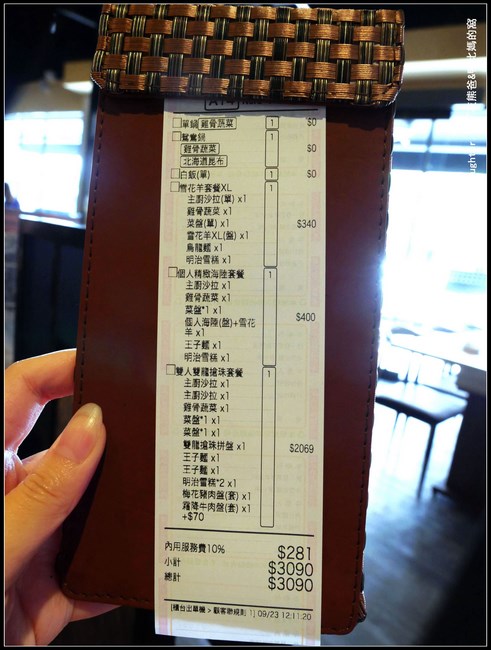 單鍋 雞骨蔬菜 1 $0
鴛鴦鍋 1 $0
雞骨蔬菜
北海道昆布
白飯(單) 1 $0
雪花羊套餐XL 1 $340
主廚沙拉(單) x1
雞骨蔬菜 x1
菜盤(單) x1
雪花羊XL(盤) x1
烏龍麵 x1
明治雪糕 x1
個人精緻海陸套餐 1 $400
主廚沙拉 x1
雞骨蔬菜 x1
菜盤*1 x1
個人海陸(盤)+雪花
羊 x1
王子麵 x1
明治雪糕 x1
雙人雙龍搶珠套餐 1 $2069
主廚沙拉 x1
主廚沙拉 x1
雞骨蔬菜 x1
菜盤*1 x1
菜盤*1 x1
雙龍搶珠拼盤 x1
王子麵 x1
王子麵 x1
明治雪糕*2 x1
梅花豬肉盤(套) x1
霜降牛肉盤(套) x1
+$70
內用服務費10% $281
小計 $3090
總計 $3090
[櫃台出單機 > 顧客聯規則 1] 09/23 12:11:20
熊爸&
媽的窩